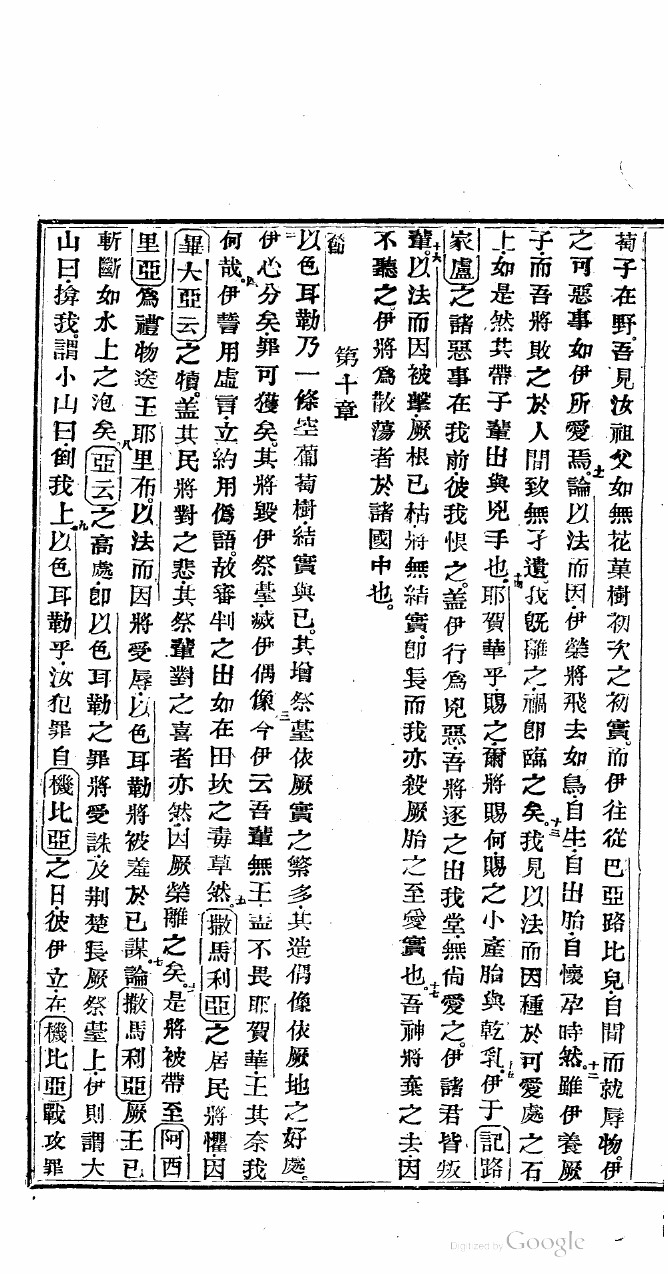 萄子在野。吾見汝祖父如無花菓樹初次之初實。而伊往從巴亞路比兒自間而就辱物。伊
之可惡事如伊所愛焉。十一論以法而因伊榮將飛去如鳥自生自出胎自懷孕時然。十二雖伊養厥
子而吾將敗之於人間致無孑遺我既離之禍即臨之矣。十三我見以法而因種於可愛處之石
上如是然其帶子輩出與兇手也。十四耶賀華乎賜之爾將賜何賜之小產胎與乾乳。十五伊于記路
家盧之諸惡事在我前彼我恨之。盖伊行為兇惡吾將逐之出我堂無尚愛之。伊諸君皆叛
輩。十六以法而因被擊厥根已枯將無結實即長而我亦殺厥胎之至愛實也。十七吾神將棄之去因
不聽之伊將為散蕩者於諸國中也。
第十章
一以色耳勒乃一條空葡萄樹結實與已。其增祭壇依厥實之繁多其造偶像依厥地之好處。
二伊心分矣罪可獲矣。其將毀伊祭臺滅伊偶像三今伊云吾輩無王葢不畏耶賀華王其奈我
何哉。四伊誓用虛言立約用僞語。故審判之出如在田坎之毒草然。五撒馬利亞之居民將懼因
畢大亞云之犢。盖其民將對之悲其祭輩對之喜者亦然因厥榮離之矣。六是將被帶至阿西
里亞為禮物送王耶里布。以法而因將受辱以色耳勒將被羞於已謀論七撒馬利亞厥王已
斬斷如水上之泡矣八亞云之高處即以色耳勒之罪將受誅及荆楚長厥祭臺上伊則謂大
山曰揜我。謂小山曰倒我上。九以色耳勒乎汝犯罪自機比亞之日彼伊立在機比亞戰攻罪
Digitized by Google